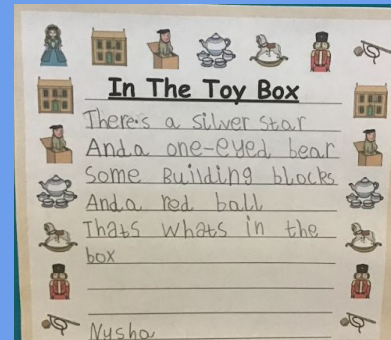 In The Toy Box
There's a silver star
And a one-eyed bear
Some Building blocks
And a red ball
Thats whats in the
box
Nysha